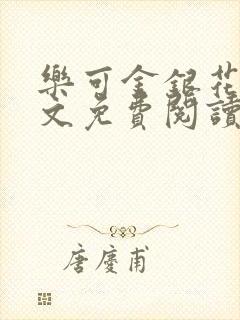 樂可金銀花
文免費閱讀
唐慶甫